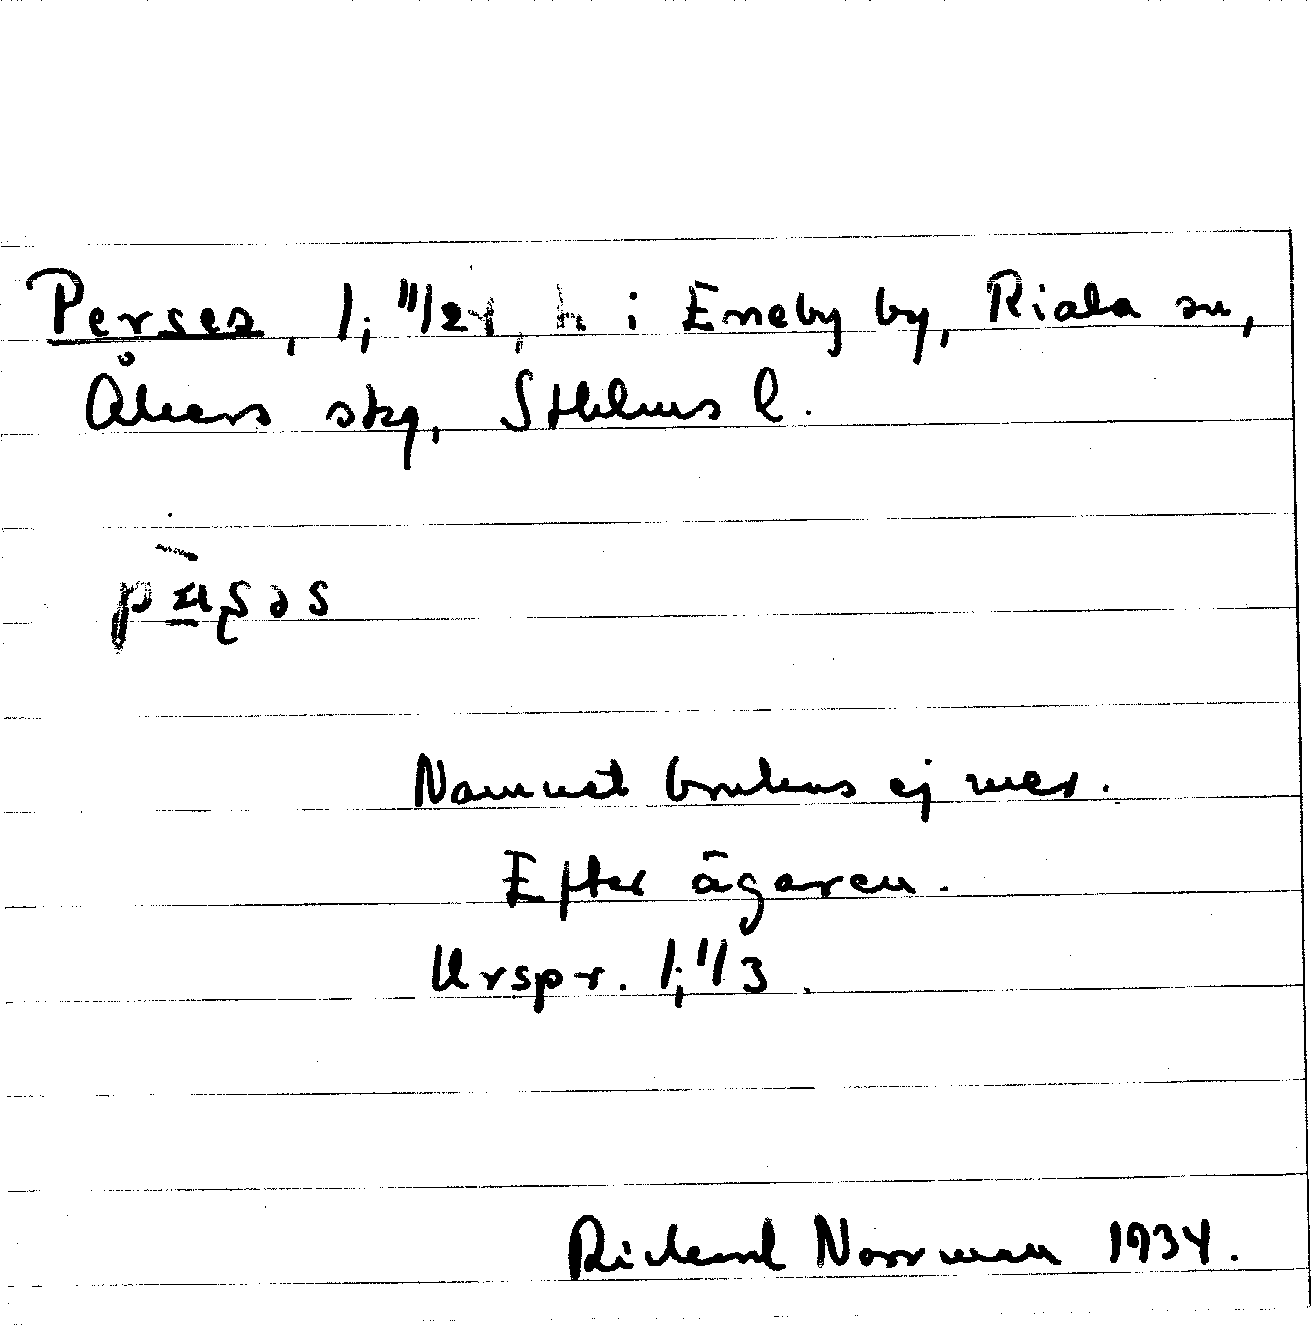 Perses, 1; 11/24, h i Eneby by, Riala sn,
Åkers skg, Sthlms l.
pæ̀ʂəs
Namnet brukas ej mer.
Efter ägaren.
Urspr. 1; 1/3.
Rickard Norrman 1934.